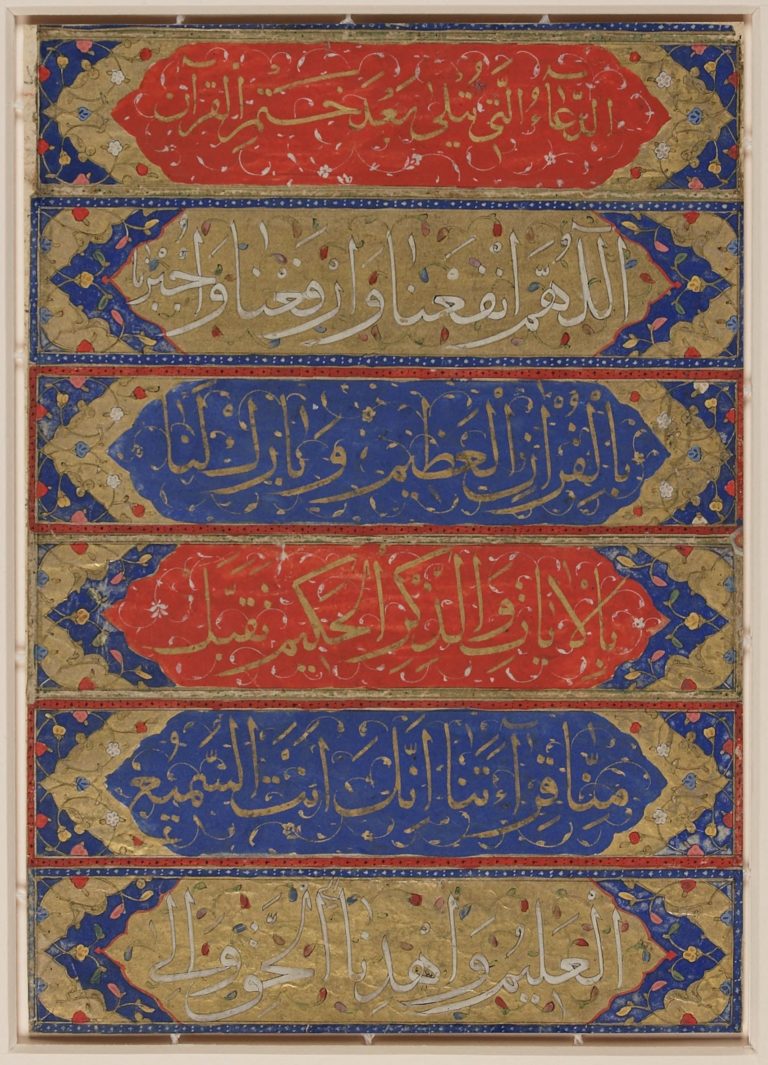 الدُّعَاءُ الَّتِي يُتْلَى بَعْدَ خَتْمِ الْقُرْآنِ
اَللّٰهُمَّ انْفَعْنَا وَارْفَعْنَا وَاجْبُرْنَا
بِالْقُرْآنِ الْعَظِيمِ وَبَارِكْ لَنَا
بِالْآيَاتِ وَالذِّكْرِ الْحَكِيمِ تَقَبَّلْ
مِنَّا قِرَآءَتَنَا اِنَّكَ اَنْتَ السَّمِيعُ
الْعَلِيمُ وَاهْدِنَا اِلَى الْحَقِّ وَاِلَى